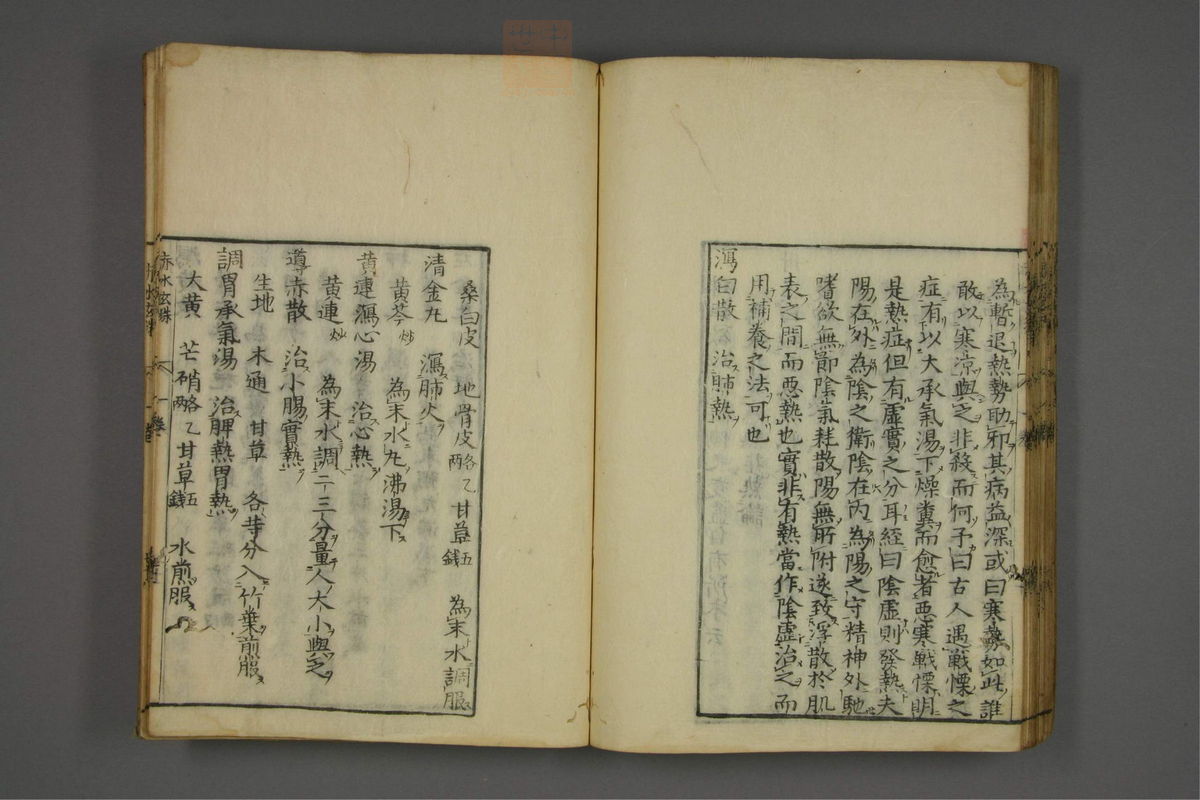 為暫退熱勢助邪其病益深或曰寒勢如此誰
敢以寒凉與之非殺而何予曰古人遇戰慄之
症有以大承氣湯下燥糞而愈者惡寒戰慄明
是熱症但有虛實之分耳經曰陰虛則發熱夫
陽在外為陰之衛陰在内為陽之守精神外馳
嗜欲無節陰氣耗散陽無所附遂致浮散於肌
表之間而惡熱也實非有熱當作陰虛治之而
用補養之法可也
瀉白散 治肺熱
桑白皮 地骨皮各乙兩 甘草五錢 為末水調服
清金丸 瀉肺火
黄芩炒 為末水丸沸湯下
黄連瀉心湯 治心熱
黄連炒 為末水調二三分量人大小與之
導赤散 治小腸實熱
生地 木通 甘草 各等分入竹葉煎服
調胃承氣湯 治脾熱胃熱
大黄 芒硝各乙兩 甘草五錢 水煎服
赤水玄珠